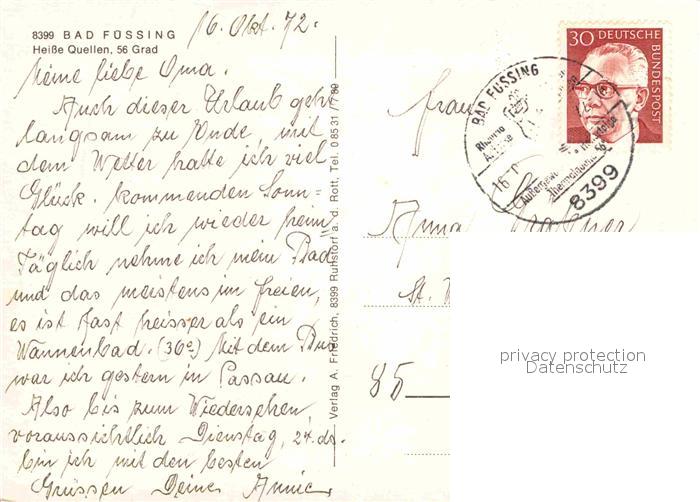 8399 BAD FÜSSING
Heiße Quellen, 56 Grad
16. Okt. 72.
Meine liebe Oma.
Auch dieser Urlaub geht
langsam zu Ende, mit
dem Wetter hatte ich viel
Glück. kommenden Sonn=
tag will ich wieder heim.
Täglich nehme ich mein Bad
und das meistens im freien,
es ist fast heisser als ein
Wannenbad. (36°) Mit dem Bus
war ich gestern in Passau.
Also bis zum Wiedersehen,
voraussichtlich Dienstag, 24. ds.
bin ich mit den besten
Grüssen Deine Annie
Verlag A. Friedrich, 8399 Ruhstorf a. d. Rott, Tel. 0 85 31 / 7 80
30 DEUTSCHE
BUNDESPOST
BAD FÜSSING
16.
8399
Frau
Anna
St.
85
privacy protection
Datenschutz